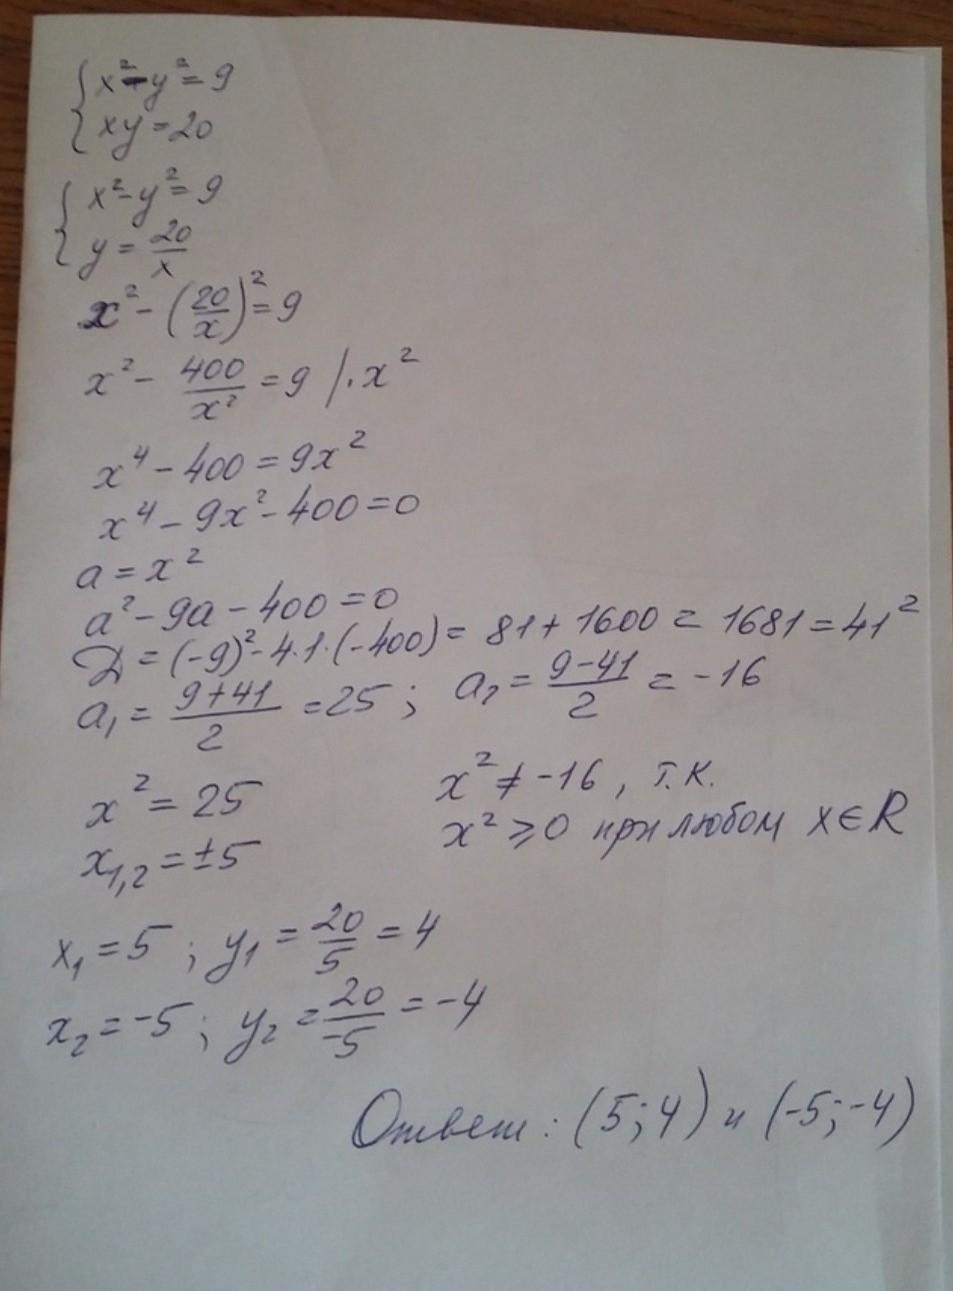 { x² - y² = 9
{ xy = 20
{ x² - y² = 9
{ y = 20/x
x² - (20/x)² = 9
x² - 400/x² = 9 /· x²
x⁴ - 400 = 9x²
x⁴ - 9x² - 400 = 0
a = x²
a² - 9a - 400 = 0
D = (-9)² - 4·1·(-400) = 81 + 1600 = 1681 = 41²
a₁ = (9+41)/2 = 25 ; a₂ = (9-41)/2 = -16
x² = 25 x² ≠ -16 , т.к.
x₁,₂ = ±5 x² ⩾ 0 при любом x ∈ R
x₁ = 5 ; y₁ = 20/5 = 4
x₂ = -5 ; y₂ = 20/-5 = -4
Ответ: (5; 4) и (-5; -4)